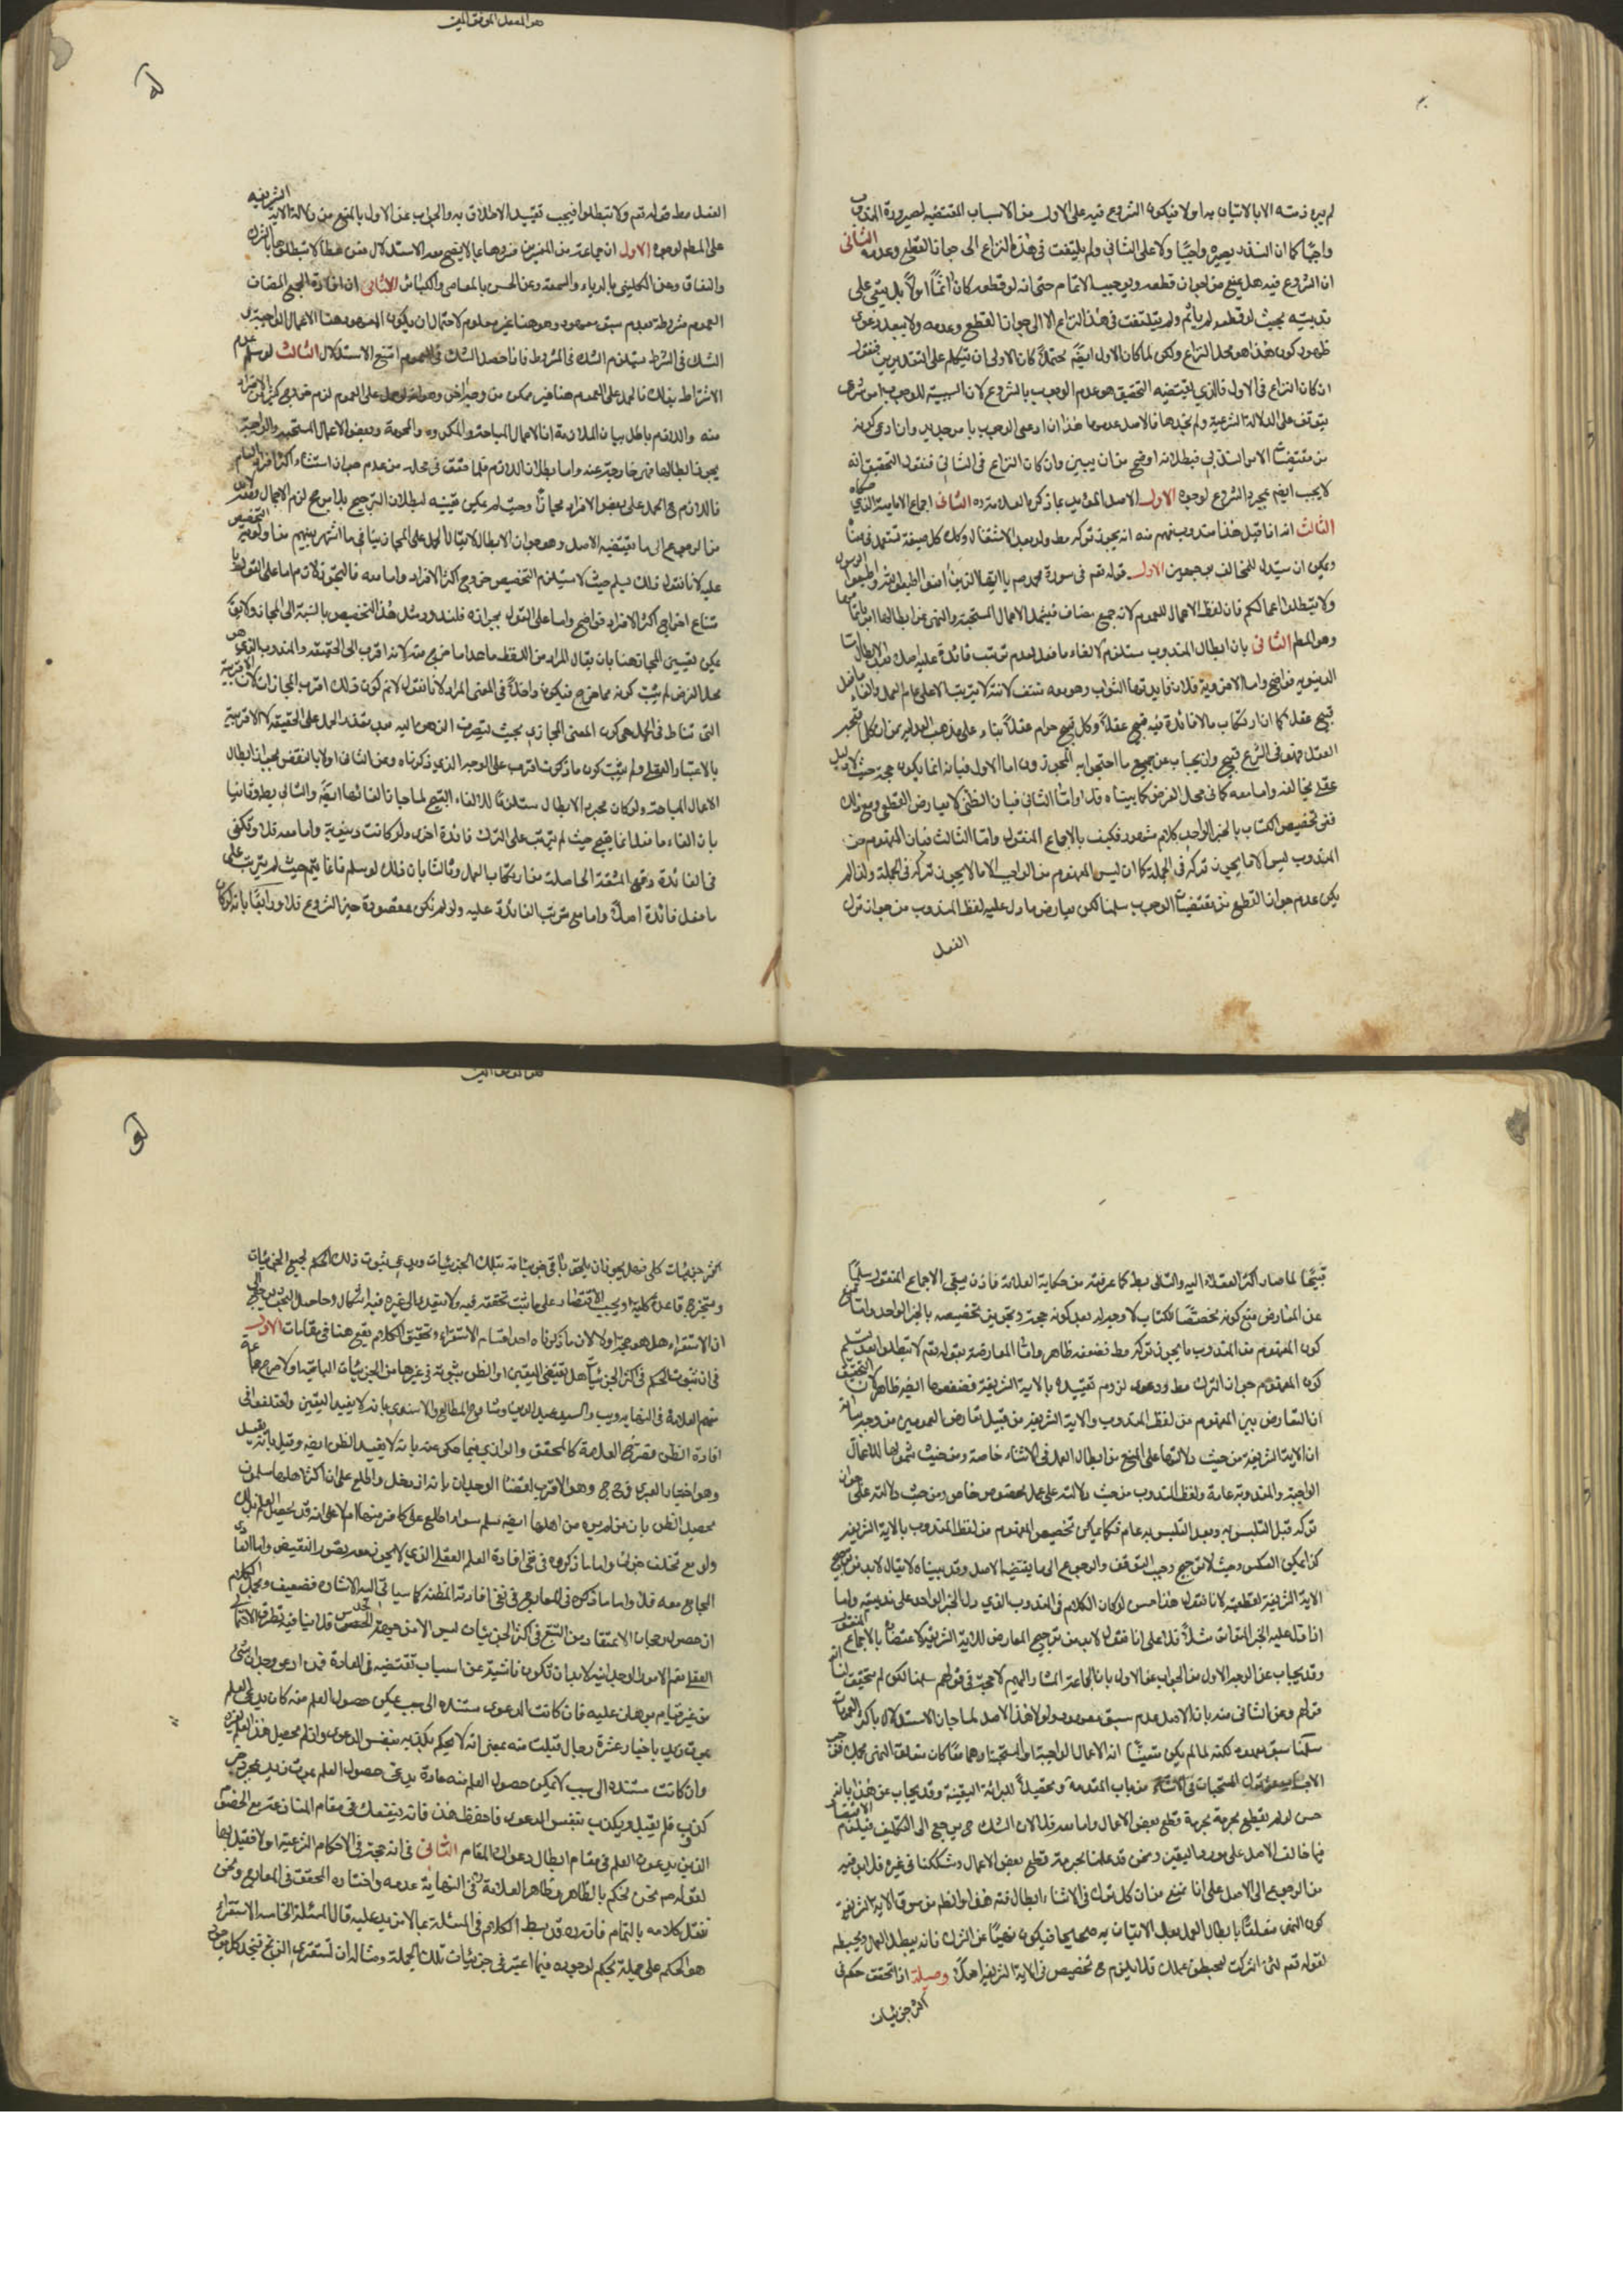 لم يبرء ذمته الا بالاتيان به اولا فيكون الشروع فيه على الاول من الاسباب المقتضيه لصيرورة المندوب
واجبا كما ان النذر يصيره واجبا ولا على الثاني ولم يلتفت فى هذه النزاع الى جواز القطع وعدمه الثانى
ان الشروع فيه هل يمنع من جواز قطعه ويوجب الاتمام حتى انه لو قطعه كان آثما اولا بل يبقى على
ندبيته بحيث لو قطعه لم يأثم ولم يلتفت فى هذا النزاع الا الى جواز القطع وعدمه ولا يبعد دعوى
ظهور كون هذا هو محل النزاع ولكن لما كان الاول ايضا محتملا كان الاولى ان يتكلم على التقديرين فنقول
ان كان النزاع فى الاول فالذي يقتضيه التحقيق هو عدم الوجوب بالشروع لان السببية للوجوب امر شرعى
يتوقف على الدلالة الشرعية ولم نجدها فالاصل عدمها هذا ان ادعى الوجوب بامر جديد وان ادعى كونه
من مقتضيات الامر الندبى فبطلانه اوضح من ان يبين وان كان النزاع فى الثانى فنقول التحقيق انه
لا يجب ايضا بمجرد الشروع لوجوه الاول الاصل المؤيد بما ذكره العلامة ره الثانى اجماع الامامية الذي حكاه
الثالث انه اذا قيل هذا مندوب يفهم منه انه يجوز تركه مط ولو بعد الاشتغال وكك كل صيغة تستعمل فى
ويمكن ان يستدل للمخالف بوجهين الاول قوله تعم فى سورة محمد ص يا ايها الذين آمنوا اطيعوا الله واطيعوا الرسول
ولا تبطلوا اعمالكم فان لفظ الاعمال للعموم لانه جمع مضاف فيشمل الاعمال المستحبة والنهى عن ابطالها
وهو المطم الثانى بان ابطال المندوب مستلزم لالغاء ما فعل لعدم ترتب فائدة عليه اصلا
الدنيويه فواضح واما الاخروية فلان فايدتها الثواب وهو معه منتف لانه لا يترتب الا على تمام العمل والغاء ما فعل
قبيح عقلا كما ان ارتكاب ما لا فائدة فيه قبيح عقلا وكل قبيح حرام عقلا بناء على مذهب العدلية من ان كل
العقل فهو فى الشرع قبيح وان يجاب عن جميع ما احتجوا به المجوزون اما الاول فبانه انما يكون حجة حيث لا دليل
عقلى يخالفه واما معه كما فى محل الفرض كما بيناه فلا واما الثانى فبان الظنى لا يعارض القطعى ومع ذلك
ففى تخصيص الكتاب بالخبر الواحد كلام مشهور فكيف بالاجماع المنقول واما الثالث فبان المفهوم من
المندوب ليس الا ما يجوز تركه فى الجملة كما ان ليس المفهوم من الواجب الا ما لا يجوز تركه فى الجملة ولذا لم
يكن عدم جواز القطع من مقتضيات الوجوب سلمنا لكن يعارض ما دل عليه لفظ المندوب من جواز ترك
الفعل
هو المفضل الموفق المعين
الفعل مط قوله تعم ولا تبطلوا فيجب تقييد الاطلاق به والجواب عن الاول بالمنع من دلالة الاية الشريفه
على المطم لوجوه الاول ان جماعة من المفسرين فسروها بما لا يصح معه الاستدلال
والنفاق وعن الكلبى بالرياء والسمعة وعن الحسن بالمعاصى والكبائر الثانى ان افادة الجمع المضاف
العموم مشروطة بعدم سبق معهود وهو هنا غير معلوم لاحتمال ان يكون المعهود هنا الاعمال الواجبة و
الشك فى الشرط يستلزم الشك فى المشروط فاذا حصل الشك فى العموم امتنع الاستدلال الثالث لو سلم عدم
الاشتراط بذلك فالحمل على العموم هنا غير ممكن من وجه اخر وهو انه لو حمل على العموم لزم خروج اكثر الافراد
منه واللازم باطل بيان الملازمة ان الاعمال المباحة والمكروه والمحرمة وبعض الاعمال المستحبة والواجبة
يجوز ابطالها فهى خارجة عنه واما بطلان اللازم فلما حقق فى محله من عدم جواز استثناء اكثر افراد العام
فاللازم ح الحمل على بعض الافراد مجازا وحيث لم يمكن تعيينه لبطلان الترجيح بلا مرجح لزم الاجمال
من الرجوع الى ما يقتضيه الاصل وهو جواز الابطال لا يقال الحمل على المجاز ينافى ما اشتهر بينهم
عليه لانا نقول ذلك يسلم حيث لا يستلزم التخصيص خروج اكثر الافراد واما معه فالتجوز لازم اما على القول
امتناع اخراج اكثر الافراد فواضح واما على القول بجوازه فلندور مثل هذا التخصيص بالنسبة الى المجاز
يمكن تعيين المجاز هنا بان يقال المراد من اللفظ ما عدا ما خرج منه لانه اقرب الى الحقيقه والمندوب الذى هو
محل الفرض لم يثبت كونه مما خرج فيكون داخلا فى المعنى المراد لانا نقول لا نم كون ذلك اقرب المجازات لان الاقربية
التى تناط فى الحمل هى كون المعنى المجازى بحيث ينصرف الذهن اليه بعد تعذر الحمل على الحقيقة لا الاقربية
بالاعتبار العقلى ولم يثبت كون ما ذكرت اقرب على الوجه الذى ذكرناه وعن الثانى اولا بالنقض بجواز ابطال
الاعمال المباحة ولو كان مجرد الابطال مستلزما للالغاء القبيح لما جاز الغائها ايضا والتالى بط وثانيا
بان الغاء ما فعل انما يقبح حيث لم يترتب على الترك فائدة اخرى ولو كانت دنيوية واما معه فلا وتكفى
فى الفائدة دفع المشقة الحاصلة من ارتكاب العمل وثالثا بان ذلك لو سلم فانما يتم حيث لم يترتب على
ما فعل فائدة اصلا واما مع ترتب الفائدة عليه ولو لم تكن مقصودة حين الشروع فلا ورابعا بانه لو كان
قبيحا لما صار اكثر العقلاء اليه والتالى بط كما عرفته من حكاية العلامة فاذن يبقى الاجماع المنقول سليما
عن المعارض منع كونه مخصصا للكتاب لا وجه له بعد كونه حجة وتجويز تخصيصه بالخبر الواحد واما منع
كون المفهوم من المندوب ما يجوز تركه مط فضعفه ظاهر واما المعارضة بقوله تعم لا تبطلوا بعد تسليم
كون المفهوم جواز الترك مط ودعوى لزوم تقييده بالاية الشريفة فضعفها ايضا ظاهر لان التحقيق
ان التعارض بين المفهوم من لفظ المندوب والاية الشريفه من قبيل تعارض العمومين من وجه
ان الاية الشريفة من حيث دلالتها على المنع من ابطال العمل فى الاثناء خاصة ومن حيث شمولها للاعمال
الواجبة والمندوبة عامة ولفظ المندوب من حيث دلالته على عمل مخصوص خاص ومن حيث دلالته على جواز
تركه قبل التلبس به وبعد التلبس به عام فكما يمكن تخصيص المفهوم من لفظ المندوب بالاية الشريفه
كذا يمكن العكس وحيث لا مرجح وجب التوقف والرجوع الى ما يقتضيه الاصل وقد بيناه لا يقال لابد من ترجيح
الاية الشريفة لقطعيته لانا نقول هذا حسن لو كان الكلام فى المندوب الذي دل الخبر الواحد على ندبيته واما
اذا دل عليه الخبر المتواتر مثلا فلا على انا نقول لابد من ترجيح المعارض للاية الشريفة لاعتضاده بالاجماع المنقول
وقد يجاب عن الوجه الاول من الجواب عن الاول بان الجماعة المشار اليهم لا حجة فى قولهم سلمنا لكن لم يتحقق لنا
مرادهم وعن الثانى منه بان الاصل عدم سبق معهود ولولا هذا الاصل لما جاز الاستدلال باكثر العمومات
سلمنا سبق معهود لكنه لما لم يكن متيقنا انه الاعمال الواجبة او المستحبة
حسن لو لم يقطع بحرمة قطع بعض الاعمال واما معه فلا لان الشك ح يرجع الى التكليف فيلزم الاقتصار
فيما خالف الاصل على مورد اليقين ونحن قد علمنا بحرمة قطع بعض الاعمال وشككنا فى غيره فلابد فيه
من الرجوع الى الاصل على انا نمنع من ان كل ترك فى الاثناء ابطال
كون النهى متعلقا بابطال العمل بعد الاتيان به صحيحا فيكون نهيا عن الشرك فانه يبطل العمل ويحبطه
لقوله تعم لئن اشركت ليحبطن عملك فلا يلزم ح تخصيص فى الاية الشريفة اصلا وصيلة اذا تحقق حكم فى
اكثر جزئيات
اكثر جزئيات كلى فهل يجوز ان يلحق باقى جزئياته بتلك الجزئيات ويدعى ثبوت ذلك الحكم لجميع الجزئيات
ويستخرج قاعدة كلية او يجب الاقتصار على ما ثبت تحققه فيه ولا يتعدى الى غيره فيه اشكال وحاصل البحث يرجع الى
ان الاستقراء هل هو حجة اولا لان ما ذكرناه احد اقسام الاستقراء وتحقيق الكلام يقع هنا فى مقامات الاول
فى ان ثبوت الحكم فى اكثر الجزئيات هل يقتضى اليقين او الظن بثبوته فى غيرها من الجزئيات الباقية اولا
منهم العلامة فى النهاية ويب والسيد عميد الدين وشارح المطالع والاسنوي بانه لا يفيد اليقين واختلفوا فى
افادة الظن فصرح العلامة كالمحقق والرازي فيما حكى عنه بانه لا يفيد الظن ايضا وقيل بانه يفيد
وهو اختيار العبرى
محصيل الظن
ولو مع تخلف جزئى واما ما ذكروه فى نفى افادة العلم العقلى الذى لا يجوز معه تصور النقيض واما العادى
المجامع معه فلا واما ما ذكره فى المعارج فى نفى افادته المظنة كما سيأتى اليه الاشارة فضعيف
ان حصول رجحان الاعتقاد من التتبع فى اكثر الجزئيات ليس الا من جهة الحدس
العقلى نعم الامور الوجدانيه لابد ان تكون ناشية عن اسباب تقتضيه فى العادة فمن ادعى وجدان شىء
من غير قيام برهان عليه فان كانت الدعوى مستندة الى سبب يمكن حصول العلم منه كان يدعى العلم
بموت زيد باخبار عشرة رجال قبلت منه بمعنى انه لا يحكم بكذبه بنفس الدعوى وان لم يحصل هذا العلم لغيره
وان كانت مستندة الى سبب لا يمكن حصول العلم منه عادة كان يدعى حصول العلم بموت زيد بمجرد خبر
كذوب فلم يقبل ويكذب بنفس الدعوى فاحفظ هذا فانه ينفعك فى مقام المنازعة مع الخصوم
الذين يدعون العلم فى مقام ابطال دعواك المقام الثانى فى انه حجة فى الاحكام الشرعية اولا فقيل بها
لقوله ص نحن نحكم بالظاهر وظاهر العلامة فى النهاية عدمه واختاره المحقق فى المعارج ونحن
ننقل كلامه بالتمام فانه ره قد بسط الكلام فى المسئلة بما لا مزيد عليه قال المسئلة الخامسة الاستقراء
هو الحكم على جملة بحكم لوجوده فيما اعتبر فى جزئيات تلك الجملة ومثاله ان تستقرى الزنج فتجد كل موجود